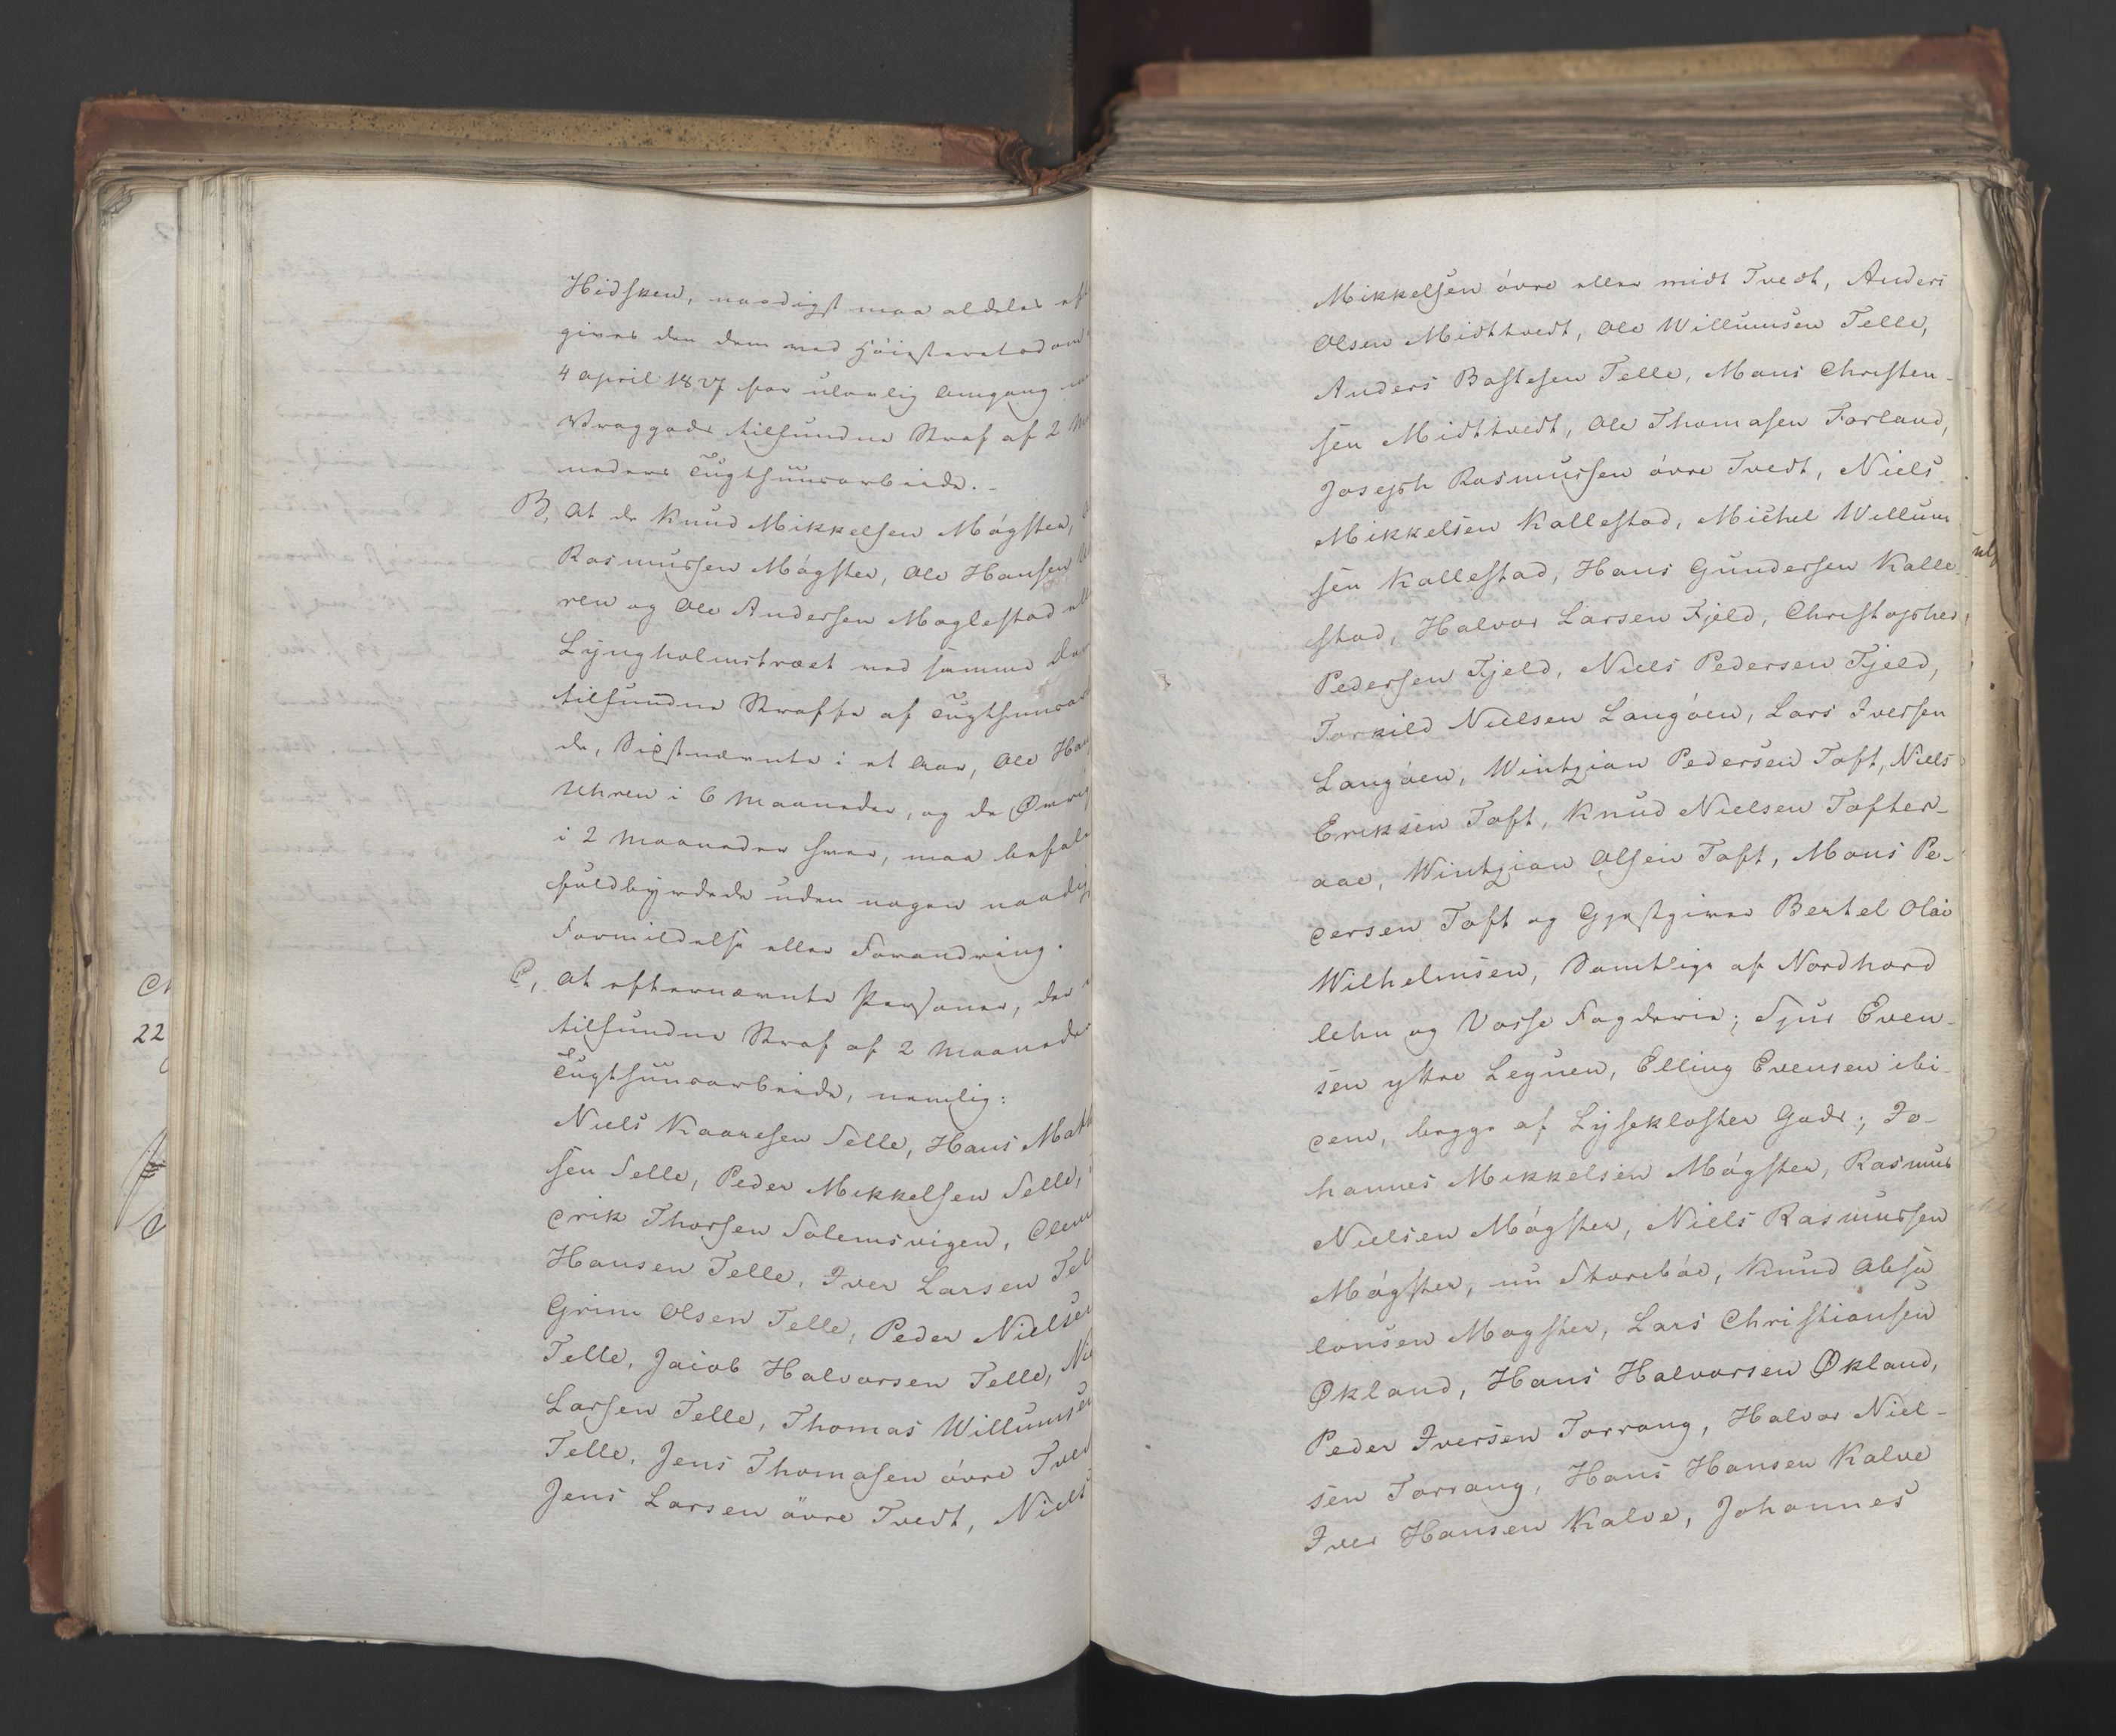 Hidsken, naadigst maa aldeles ef
gives den dem ved Høiesteretsdom
4 april 1827 for ulovlig Omgang
Vraggods tilfundne Straf af 2 M
neders Tugthuusarbeide. -
B, At de Knud Mikkelsen Møgster,
Rasmussen Møgster, Ole Hansen
ren og Ole Andersen Moglestad ell
Lyngholmstræet ved samme Dom
tilfundne Straffe af Tugthuusar
de, Sidstnævnte i et Aar, Ole Han
Uhren i 6 Maaneder, og de Øvrig
i 2 Maaneder hver, maa befale
fuldbyrdede uden nogen naadig
Formildelse eller Forandring.
C, At efternævnte Personer, der
tilfundne Straf af 2 Maaneder
Tugthuusarbeide, nemlig:
Niels Kaaresen Selle, Hans Math
sen Selle, Peder Mikkelsen Selle,
Erik Thorsen Solemsvigen, Clem
Hansen Telle, Iver Larsen Tel
Grim Olsen Telle, Peder Nielsen
Telle, Jacob Halvorsen Telle, Nie
Larsen Telle, Thomas Willumsen
Telle, Jens Thomasen øvre Tved
Jens Larsen øvre Tvedt, Niels
Mikkelsen øvre eller midt Tvedt, Anders
Olsen Midttvedt, Ole Willumsen Telle,
Anders Bastesen Telle, Mons Christen-
sen Midttvedt, Ole Thomasen Forland,
Joseph Rasmussen øvre Tvedt, Niels
Mikkelsen Kallestad, Michel Willum
sen Kallestad, Hans Gundersen Kalle
stad, Halvor Larsen Fjeld, Christopher
Pedersen Fjeld, Niels Pedersen Fjeld,
Torkild Nielsen Langøen, Lars Iversen
Langøen, Wintzian Pedersen Toft, Niels
Eriksen Toft, Knud Nielsen Tofter-
aae, Wintzian Olsen Toft, Mons Pe-
dersen Toft og Gjestgiver Bertel Olai
Wilhelmsen, Samtlige af Nordhord
lehn og Vosse Fogderie; Sjur Even-
sen yttre Legnen, Elling Evensen ibi-
dem, begge af Lysekloster Gods; Jo-
hannes Mikkelsen Møgster, Rasmus
Nielsen Møgster, Niels Rasmussen
Møgster, nu Storebøe, Knud Absa
lonsen Møgster, Lars Christiansen
Økland, Hans Halvorsen Økland,
Peder Iversen Torrang, Halvor Niel-
sen Torrang, Hans Hansen Kalve
Iver Hansen Kalve, Johannes
22